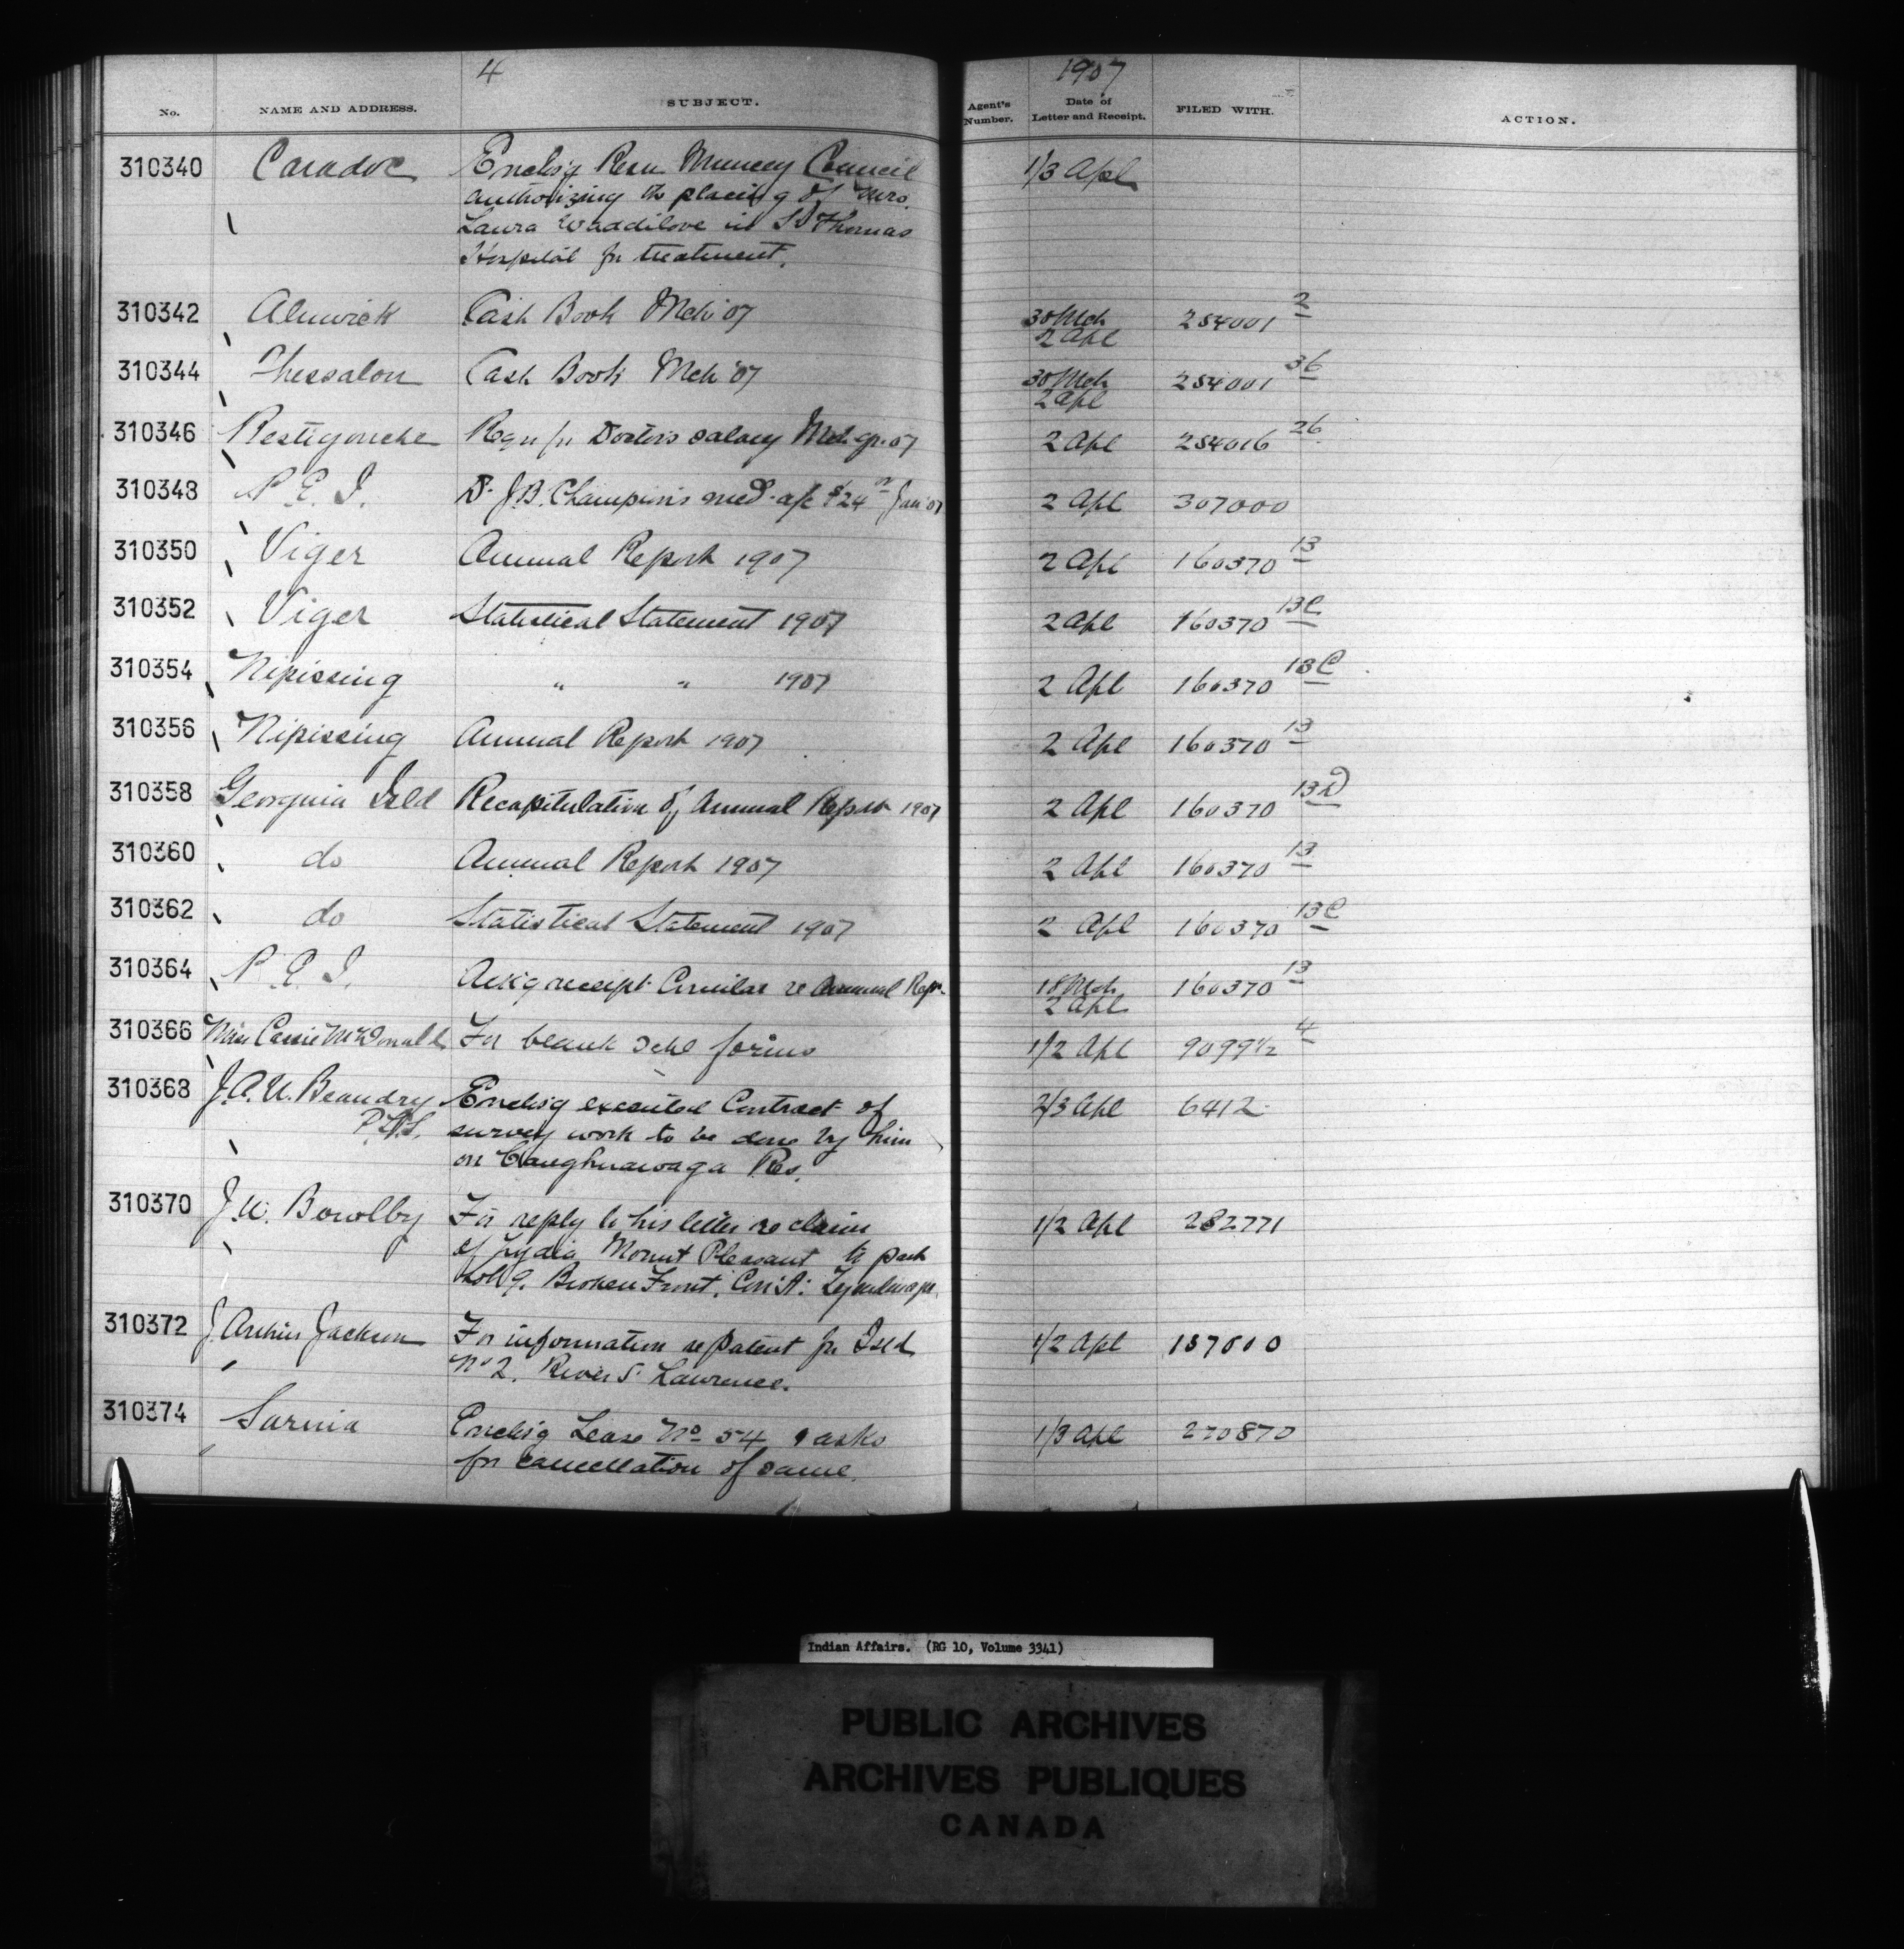 4 1907
No. NAME AND ADDRESS. SUBJECT. Agent's Number. Date of Letter and Receipt. FILED WITH. ACTION.
310340 Caradoc Enclos'g Resn Muncey Council 1/3 Apl
authorizing the placing of Mrs.
Laura Waddilove in St Thomas
Hospital for treatment.
310342 Alnwick Cash Book Mch '07 30 Mch 254001 2
2 Apl
310344 Thessalon Cash Book Mch '07 30 Mch 254001 36
2 Apl
310346 Restigouche Reqn for Doctors salary Mch qr. 07 2 Apl 254016 26
310348 P. E. I. Dr J.B. Champion's med. a/c $24 00 Jan '07 2 Apl 307000
310350 Viger Annual Report 1907 2 Apl 160370 13
310352 Viger Statistical Statement 1907 2 Apl 160370 13C
310354 Nipissing " " 1907 2 Apl 160370 13C
310356 Nipissing Annual Report 1907 2 Apl 160370 13
310358 Georgina Isld Recapitulation of Annual Report 1907 2 Apl 160370 13D
310360 do Annual Report 1907 2 Apl 160370 13
310362 do Statistical Statement 1907 2 Apl 160370 13C
310364 P. E. I. Ack'g receipt Circular re Annual Rept. 18 Mch 160370 13
2 Apl
310366 Miss Cassie McDonald For blank Schl forms 1/2 Apl 9099 1/2 4
310368 J.A.U. Beaudry Enclos'g executed Contract of 2/3 Apl 6412
P.L.S. survey work to be done by him
on Caughnawaga Res.
310370 J.W. Bowlby For reply to his letter re claim 1/2 Apl 282771
of Lydia Mount Pleasant to part
Lot 9. Broken Front, Con: A:
310372 J Arthur Jackson For information re Patent for Isld 1/2 Apl 187000
No 2. River St Lawrence.
310374 Sarnia Enclos'g Lease No 54 & asks 1/3 Apl 270870
for cancellation of same.
Indian Affairs. (RG 10, Volume 3341)
PUBLIC ARCHIVES
ARCHIVES PUBLIQUES
CANADA